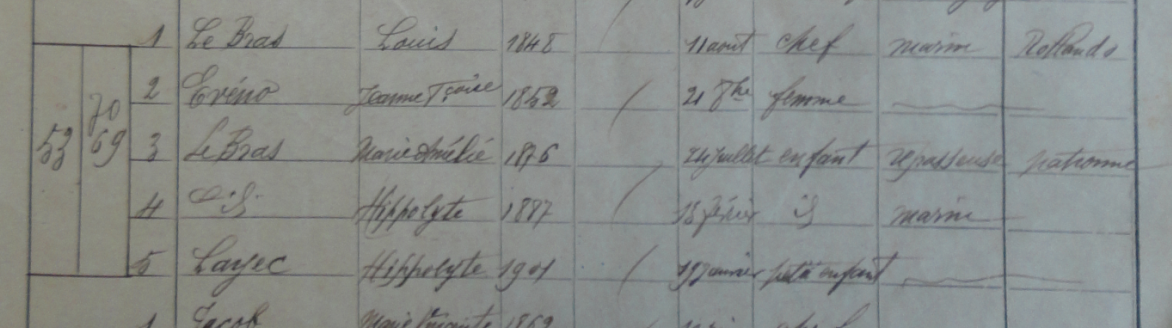 1 Le Bras Louis 1848 11 aout chef marin
2 Evéno Jeanne Fçoise 1852 21 femme
53 70 69 3 Le Bras Marie Amélie 1876 24 juillet enfant repasseuse patronne
4 Hippolyte 1887 18 février marin
5 Layec Hippolyte 1901 19 janvier petit enfant
1 Jacob Marie 1869